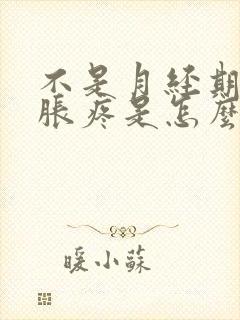 不是月经期
脹疼是怎麼
暖小蘇